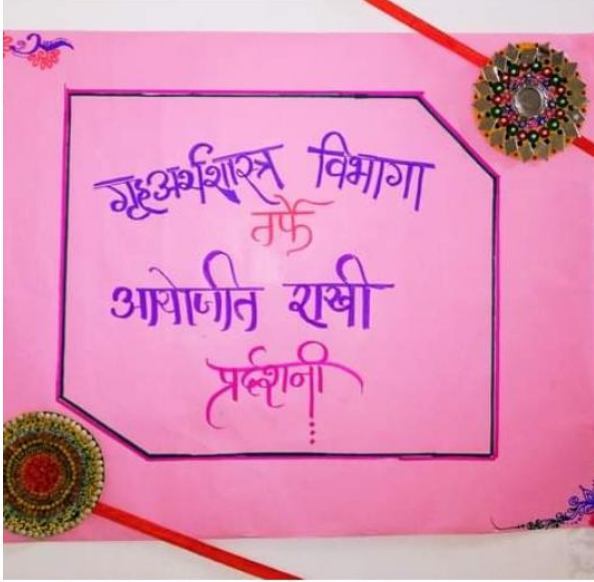 गृहअर्थशास्त्र विभागा
तर्फे
आयोजीत राखी
प्रर्दशनी...